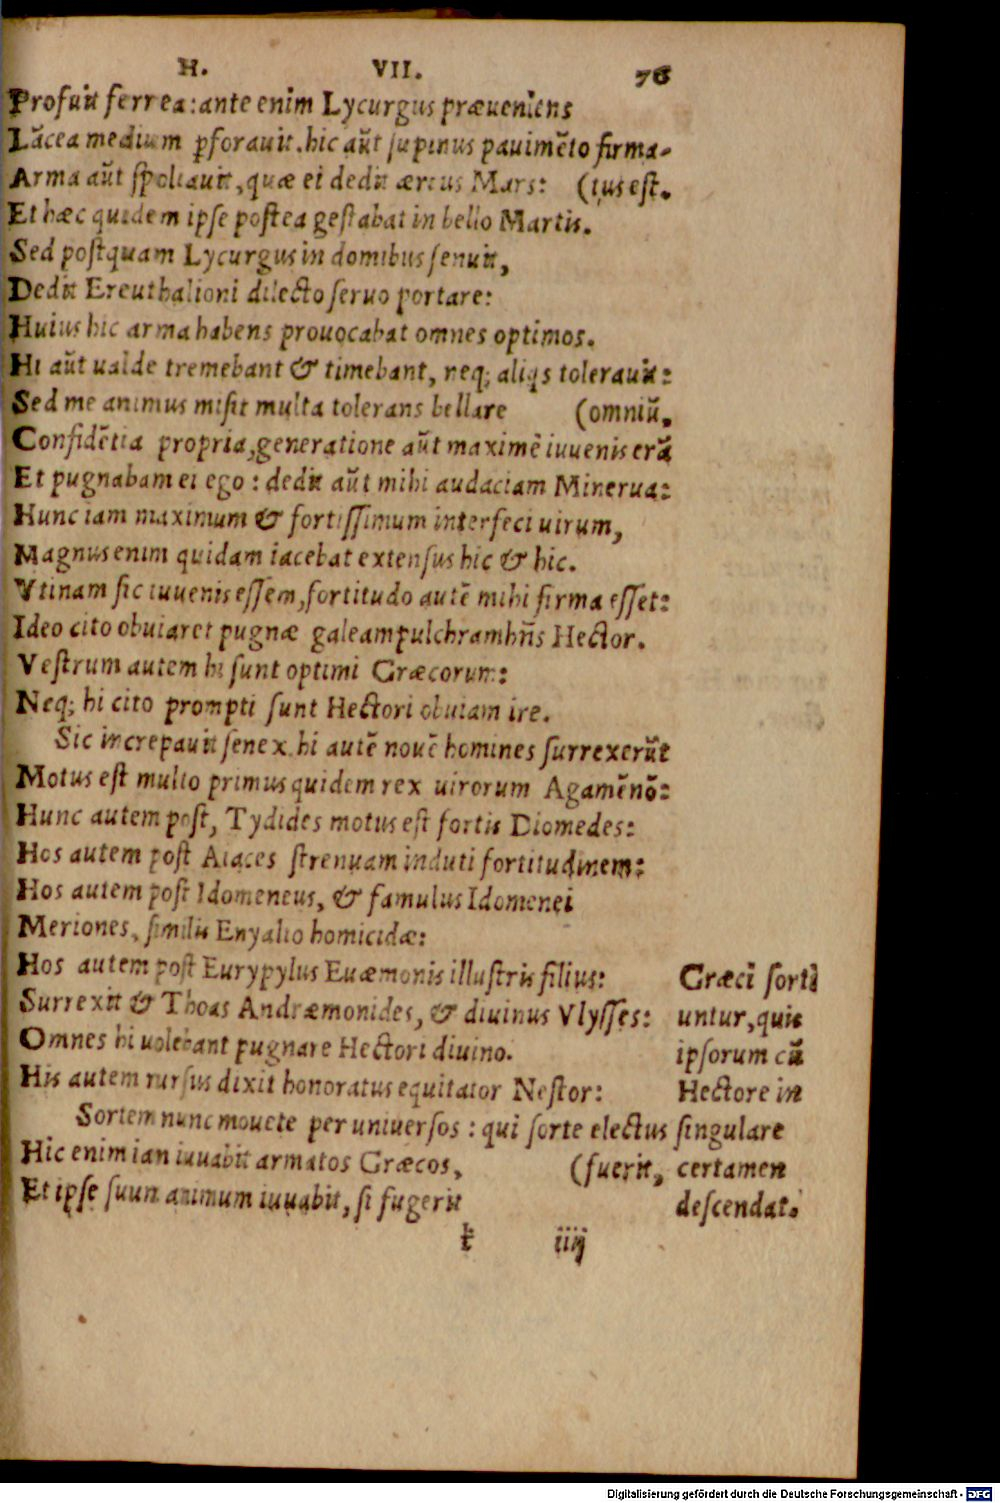 H. VII. 76
Profuit ferrea: ante enim Lycurgus præueniens
Lãcea medium pforauit. hic aũt supinus pauimẽto firma-
Arma aũt spoliauit, quæ ei dedit æreus Mars: (tus est.
Et hæc quidem ipse postea gestabat in bello Martis.
Sed postquam Lycurgus in domibus senuit,
Dedit Ereuthalioni dilecto seruo portare:
Huius hic arma habens prouocabat omnes optimos.
Hi aũt ualde tremebant & timebant, neq; aliqs tolerauit:
Sed me animus misit multa tolerans bellare (omniũ.
Confidẽtia propria, generatione aũt maximè iuuenis erã
Et pugnabam ei ego: dedit aũt mihi audaciam Minerua:
Hunc iam maximum & fortissimum interfeci uirum,
Magnus enim quidam iacebat extensus hic & hic.
Vtinam sic iuuenis essem, fortitudo autẽ mihi firma esset:
Ideo cito obuiaret pugnæ galeam pulchram hñs Hector.
Vestrum autem hi sunt optimi Græcorum:
Neq; hi cito prompti sunt Hectori obuiam ire.
Sic increpauit senex. hi autẽ nouẽ homines surrexerũt
Motus est multo primus quidem rex uirorum Agamẽnõ:
Hunc autem post, Tydides motus est fortis Diomedes:
Hos autem post Aiaces strenuam induti fortitudinem:
Hos autem post Idomeneus, & famulus Idomenei
Meriones, similis Enyalio homicidæ:
Hos autem post Eurypylus Euæmonis illustris filius:
Surrexit & Thoas Andræmonides, & diuinus Vlysses:
Omnes hi uolebant pugnare Hectori diuino.
His autem rursus dixit honoratus equitator Nestor:
Sortem nunc mouete per uniuersos: qui sorte electus
Hic enim iam iuuabit armatos Græcos, (fuerit,
Et ipse suum animum iuuabit, si fugerit
Græci sorti
untur, quis
ipsorum cũ
Hectore in
singulare
certamen
descendat.
k iiij
Digitalisierung gefördert durch die Deutsche Forschungsgemeinschaft - DFG